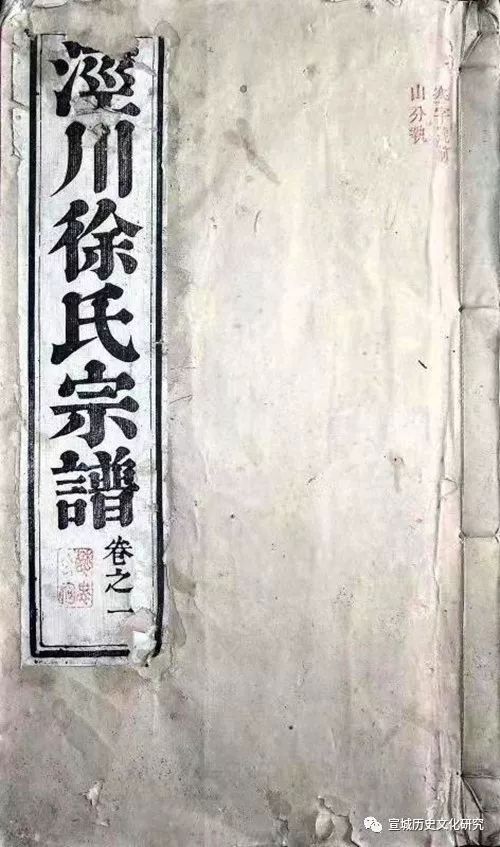 涇川徐氏宗譜
卷之一
山分號
宣城历史文化研究